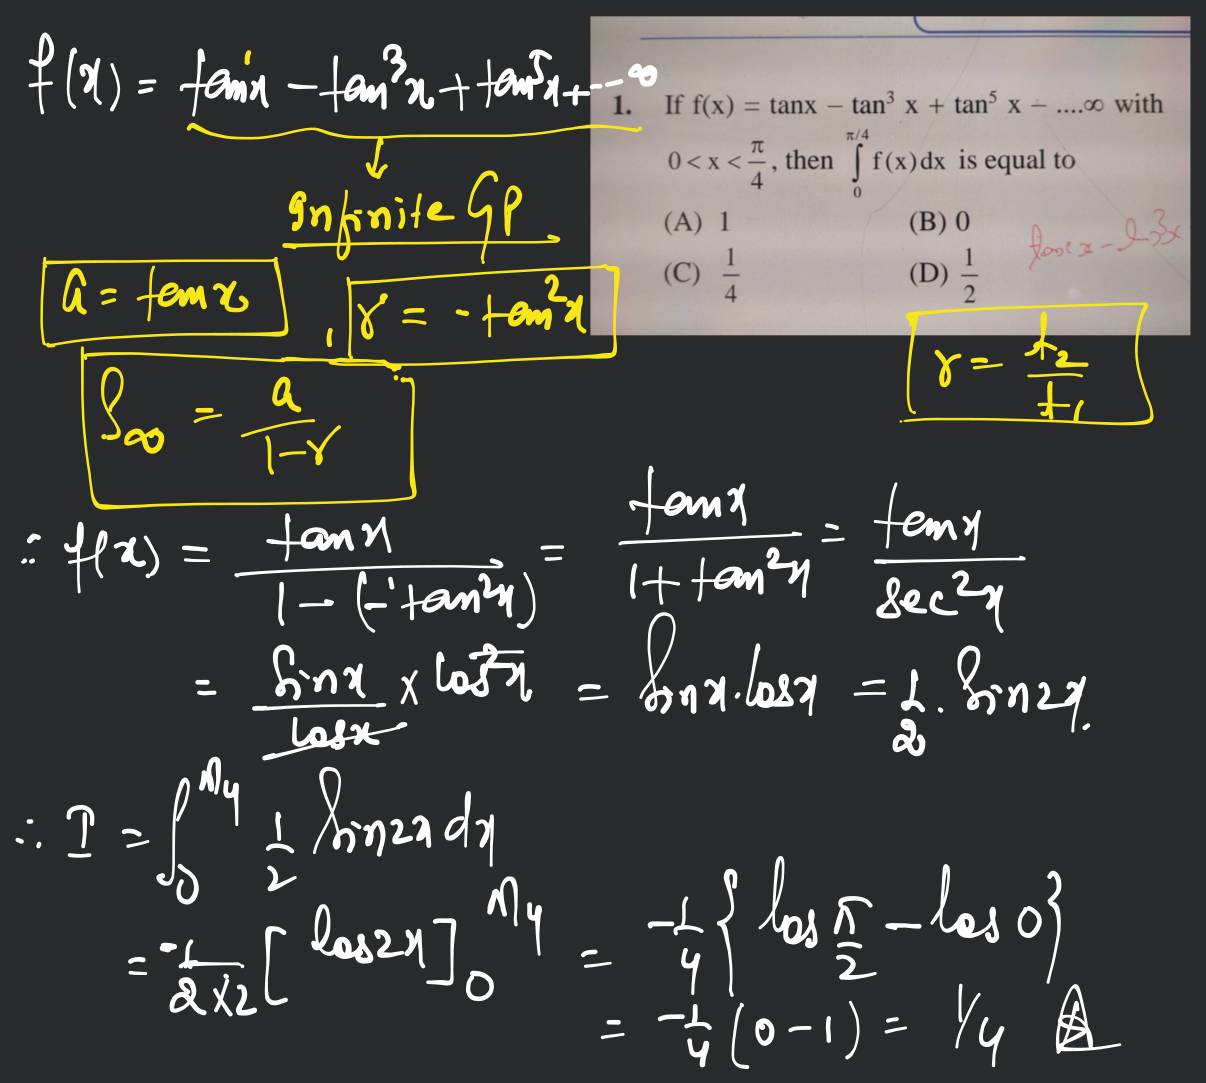 f(x) = tan x − tan³x + tan⁵x + --- ∞
Infinite GP
a = tan x , r = -tan²x
S∞ = a/(1-r)
1. If f(x) = tanx − tan³ x + tan⁵ x − ....∞ with
0 < x < π/4, then ∫₀^(π/4) f(x) dx is equal to
(A) 1 (B) 0
(C) 1/4 (D) 1/2
r = t₂/t₁
∴ f(x) = tan x/(1 − (−tan²x)) = tan x/(1 + tan²x) = tan x/sec²x
= sin x/cos x × cos²x = sin x . cos x = 1/2 . sin 2x.
∴ I = ∫₀^(π/4) 1/2 sin 2x dx
= -1/(2×2) [cos 2x]₀^(π/4) = -1/4 {cos π/2 − cos 0}
= -1/4 (0 − 1) = 1/4